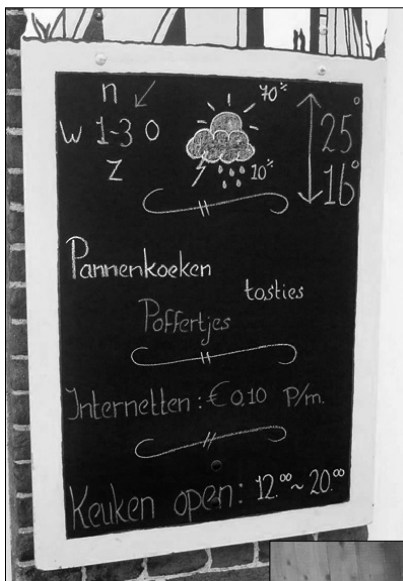 n
70%
W 1-3 O
25°
Z
10%
16°
Pannenkoeken
tosties
Poffertjes
Internetten: € 0,10 P/m.
Keuken open: 12.⁰⁰ ~ 20.⁰⁰